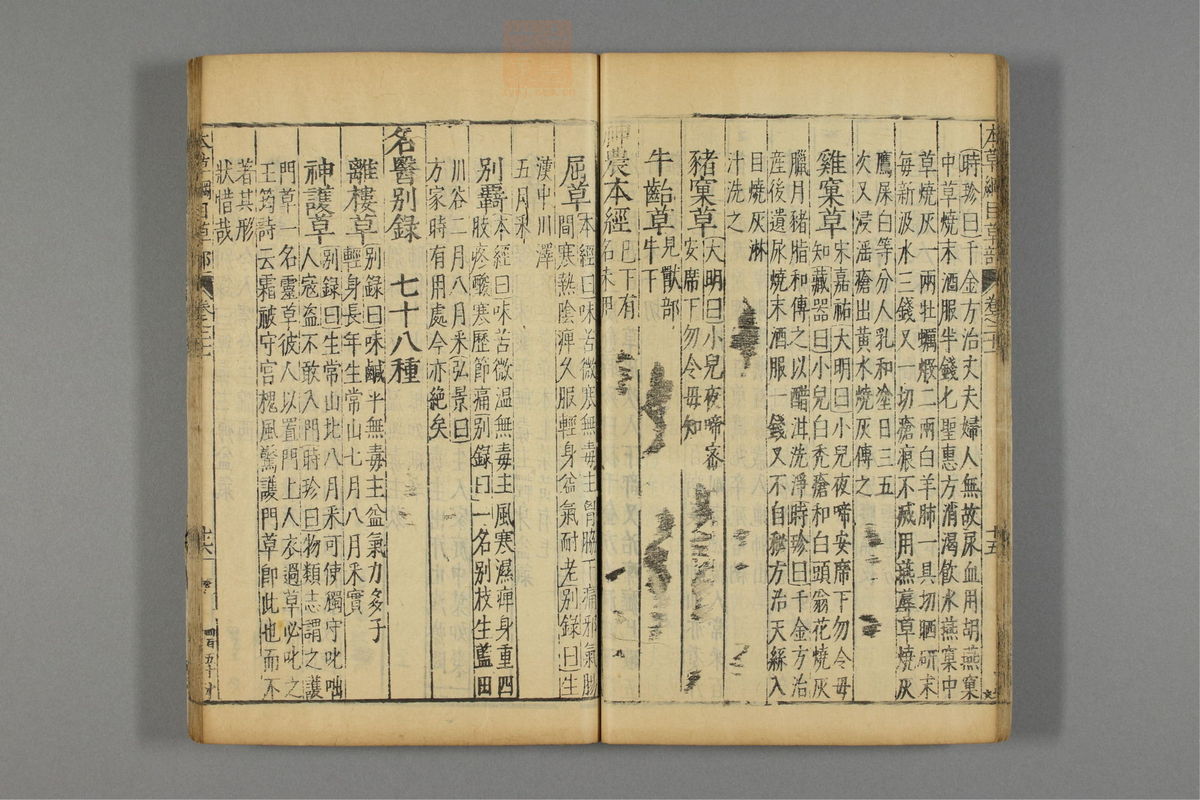 本草綱目草部 卷之二十一 十五
時珍曰千金方治丈夫婦人無故尿血用胡燕窠
中草燒末酒服半錢匕聖惠方消渴飲水燕窠中
草燒灰一兩牡蠣煅二兩白羊肺一具切晒研末
每新汲水三錢又一切瘡痕不滅用燕蓐草燒灰
鷹屎白等分人乳和塗日三五
次又浸淫瘡出黃水燒灰傅之
雞窠草宋嘉祐大明曰小兒夜啼安席下勿令母
知藏器曰小兒白禿瘡和白頭翁花燒灰
臘月豬脂和傅之以醋泔洗淨時珍曰千金方治
産後遺尿燒末酒服一錢又不自秘方治天絲入
目燒灰淋
汁洗之
豬窠草大明曰小兒夜啼密
安席下勿令母知
牛齝草見獸部
牛下
神農本經已下有
名未用
屈草本經曰味苦微寒無毒主胷脇下痛邪氣腸
間寒熱陰痺久服輕身益氣耐老別錄曰生
漢中川澤
五月采
別羇本經曰味苦微温無毒主風寒濕痺身重四
肢疼酸寒歷節痛別錄曰一名別枝生藍田
川谷二月八月采弘景曰
方家時有用處今亦絶矣
名醫別錄 七十八種
離樓草別錄曰味鹹平無毒主益氣力多子
輕身長年生常山七月八月采實
神護草別錄曰生常山北八月采可使獨守叱咄
人寇盜不敢入門時珍曰物類志謂之護
門草一名靈草彼人以置門上人衣過草必叱之
王筠詩云霜被守宫槐風驚護門草卽此也而不
著其形
狀惜哉
本草綱目草部 卷之二十一 十六